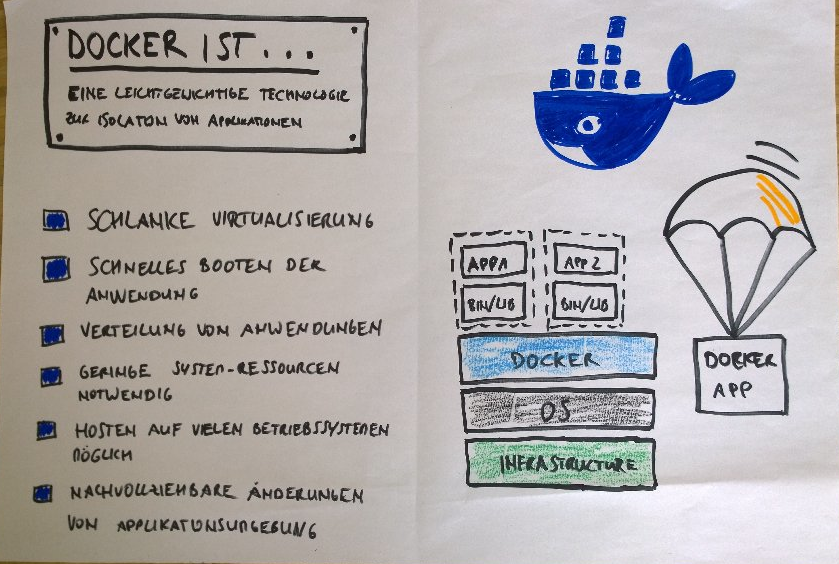 DOCKER IST...
EINE LEICHTGEWICHTIGE TECHNOLOGIE
ZUR ISOLATON VON APPLIKATIONEN
SCHLANKE VIRTUALISIERUNG
SCHNELLES BOOTEN DER
ANWENDUNG
VERTEILUNG VON ANWENDUNGEN
GERINGE SYSTEM-RESSOURCEN
NOTWENDIG
HOSTEN AUF VIELEN BETRIEBSSYSTEMEN
MÖGLICH
NACHVOLLZIEHBARE ÄNDERUNGEN
VON APPLIKATONSUMGEBUNG
APP1 APP2
BIN/LIB BIN/LIB
DOCKER
OS
INFRASTRUCTURE
DOCKER
APP